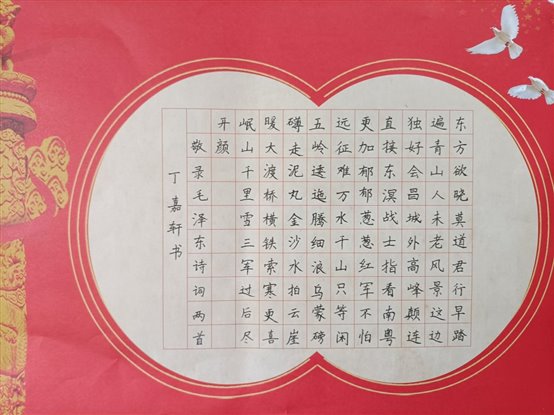 东方欲晓莫道君行早踏
遍青山人未老风景这边
独好会昌城外高峰颠连
直接东溟战士指看南粤
更加郁郁葱葱红军不怕
远征难万水千山只等闲
五岭逶迤腾细浪乌蒙磅
礴走泥丸金沙水拍云崖
暖大渡桥横铁索寒更喜
岷山千里雪三军过后尽
开颜
敬录毛泽东诗词两首
丁嘉轩书